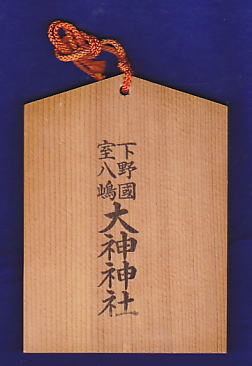 下野國
室八嶋
大神神社